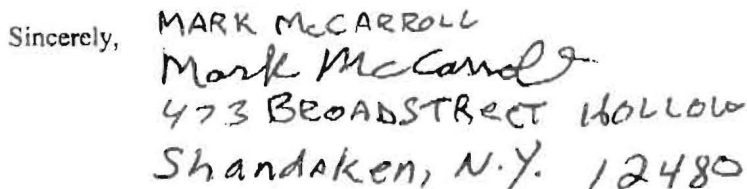 Sincerely, MARK McCARROLL
Mark McCarroll
473 BROADSTREET HOLLOW
Shandaken, N.Y. 12480